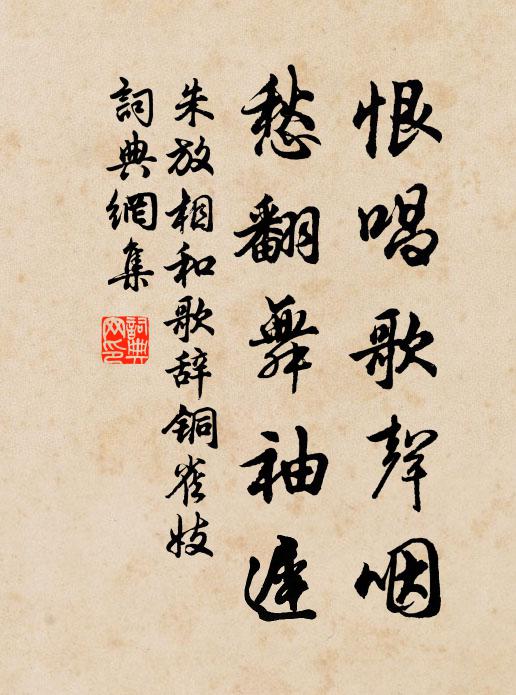 恨唱歌聲咽
愁翻舞袖遲
朱放相和歌辞铜雀妓
詞典網集
詞典網印